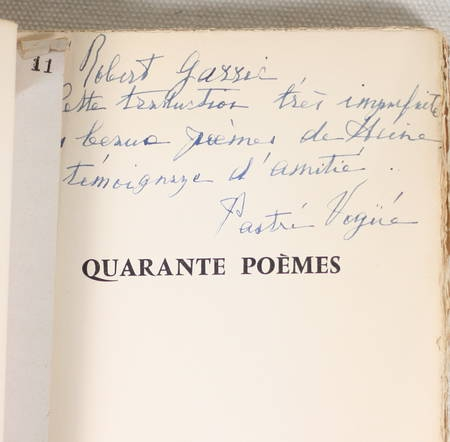 11
Robert Garric
Cette traduction très imparfaite
beaux poèmes de Heine
témoignage d'amitié ..
Pastré Vogüé
QUARANTE POÈMES